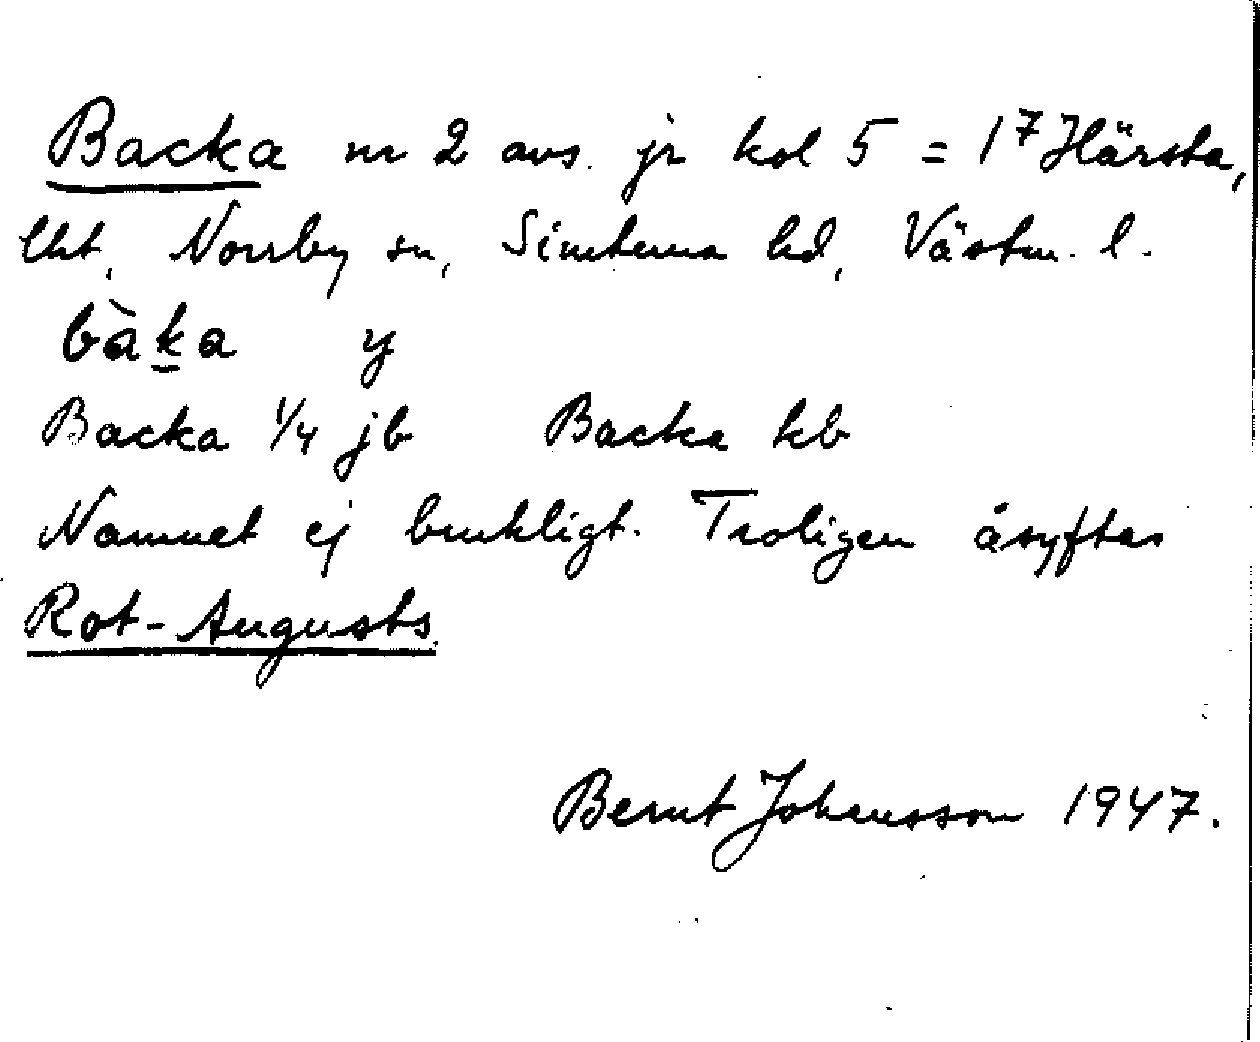 Backa nr 2 avs. jr kol 5 = 1⁷ Härsta,
lht, Norrby sn, Simtuna hd, Västm. l.
bàka y
Backa 1/4 jb Backa kb
Namnet ej brukligt. Troligen åsyftas
Rot-Augusts.
Bernt Johansson 1947.